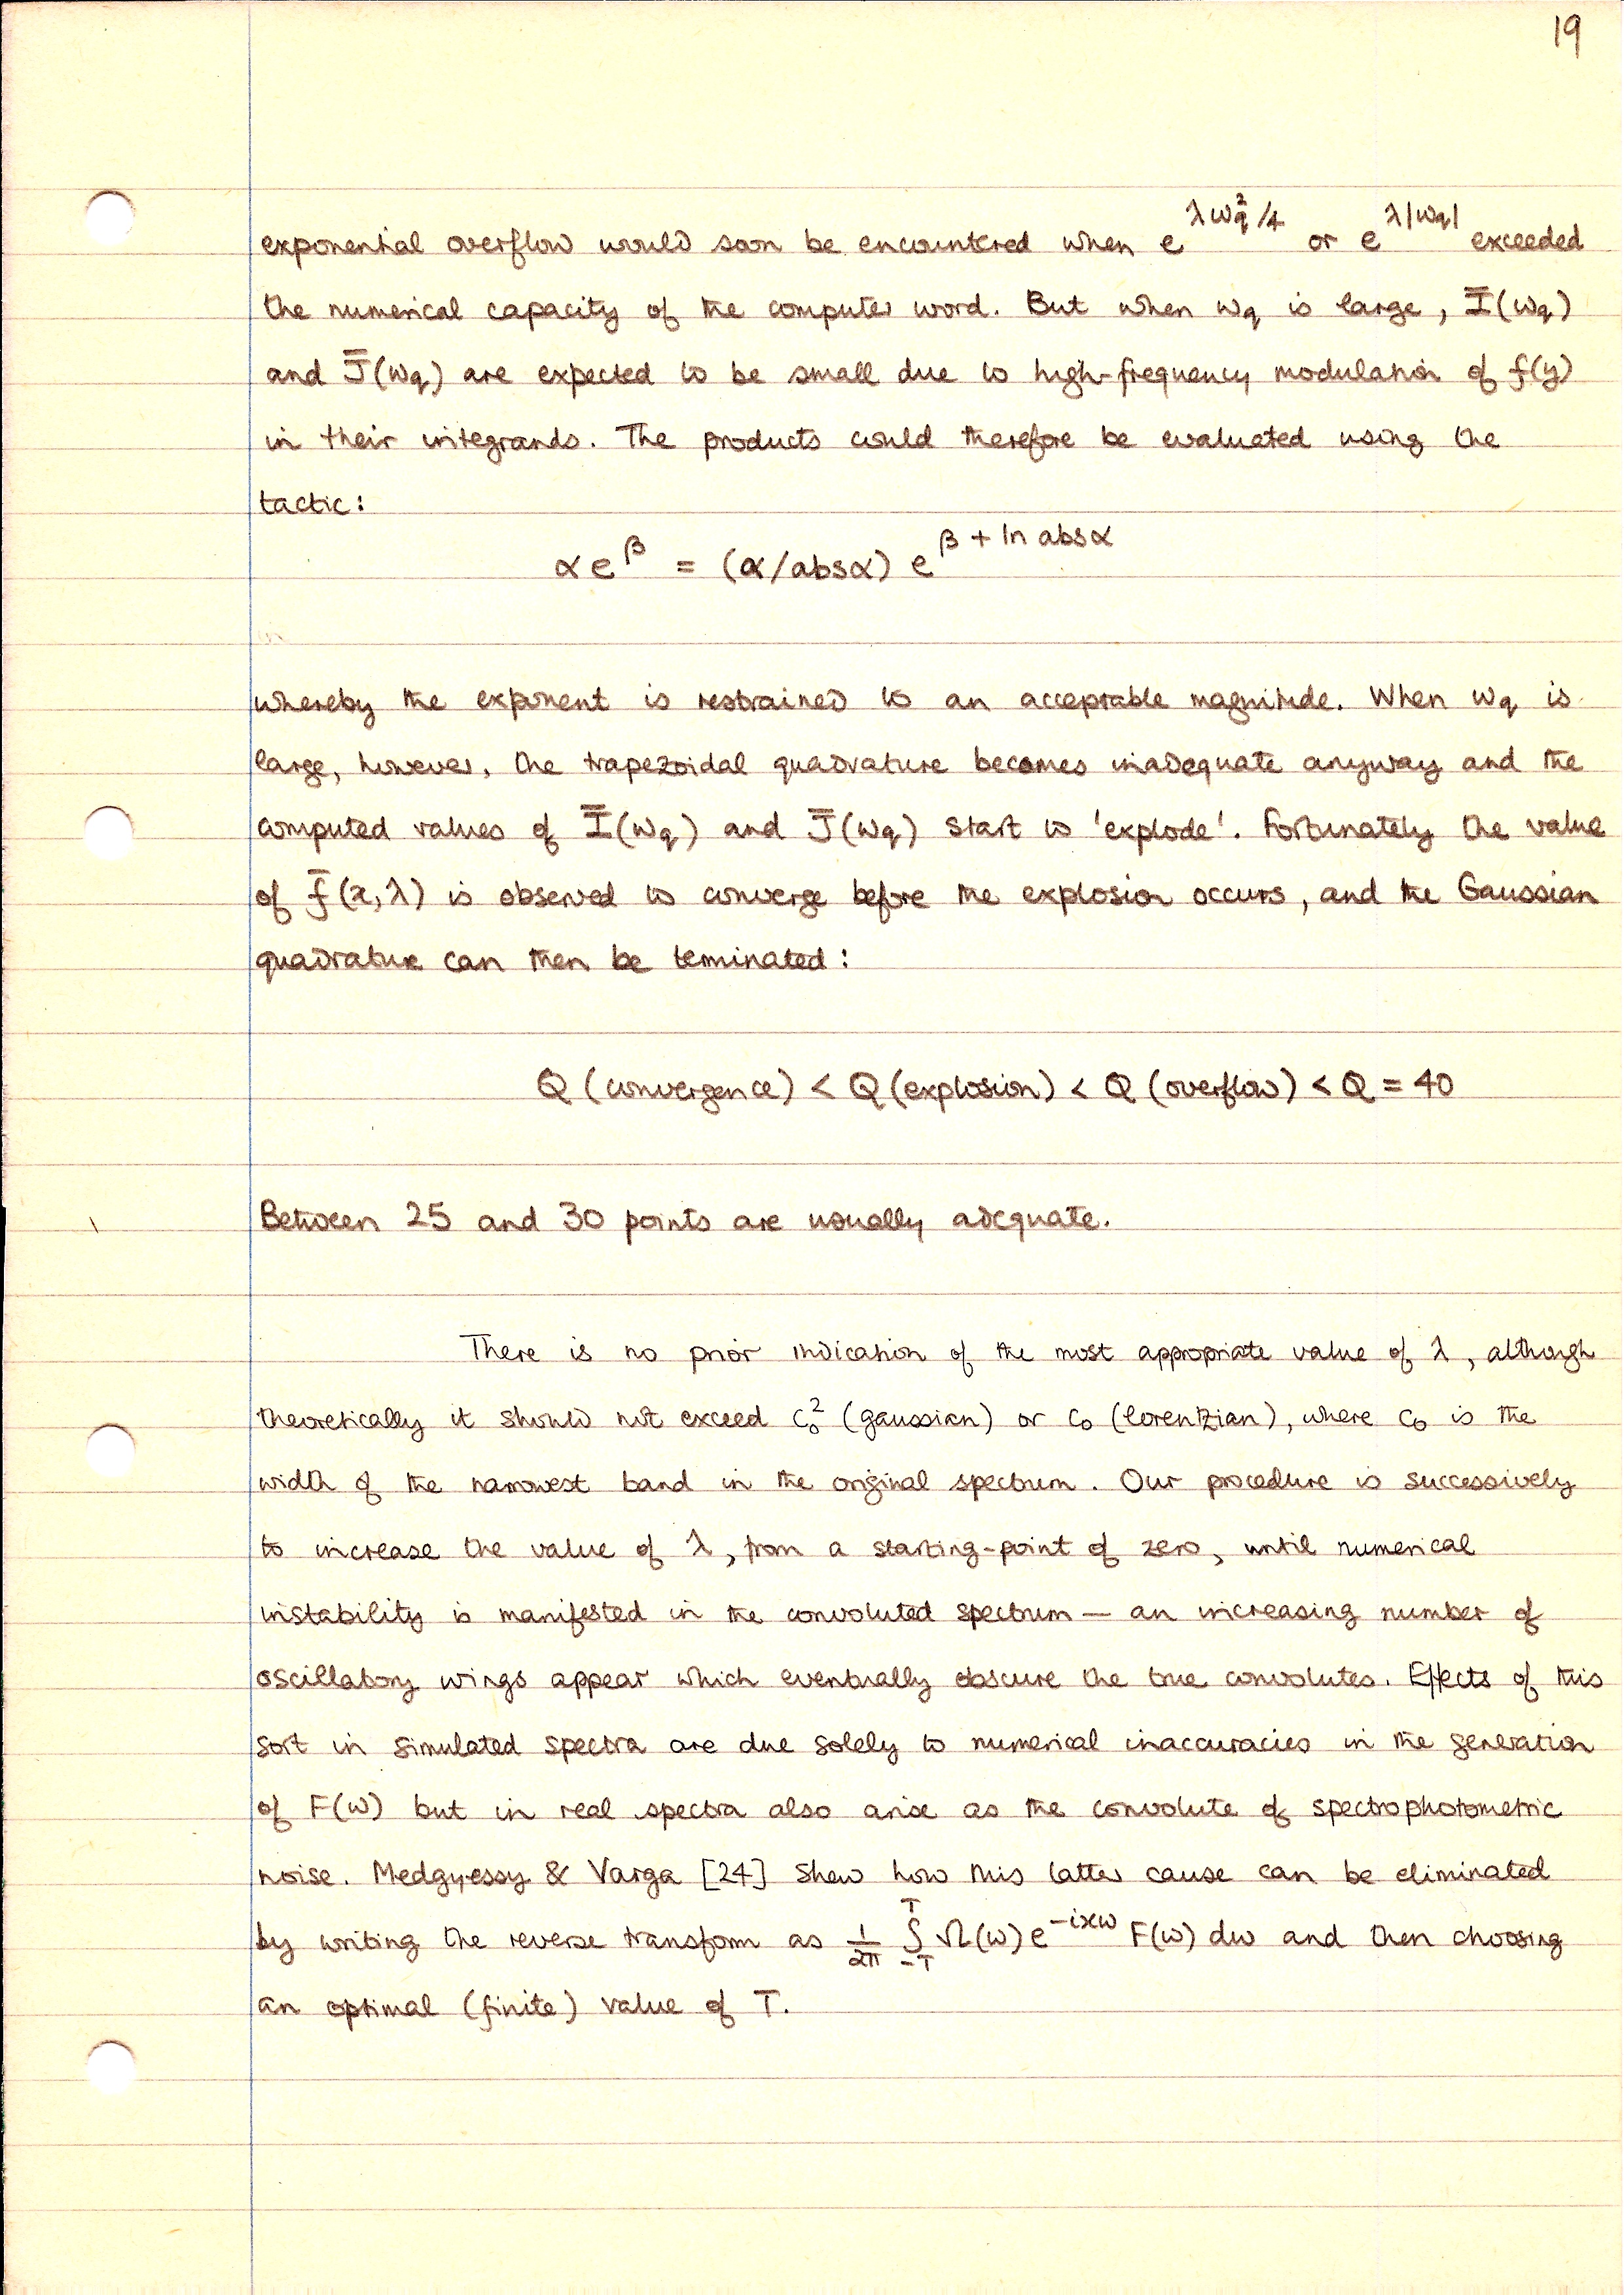 19
exponential overflow would soon be encountered when e^{λω_q²/4} or e^{λ|ω_q|} exceeded
the numerical capacity of the computer word. But when ω_q is large, Ī(ω_q)
and J̄(ω_q) are expected to be small due to high-frequency modulation of f(y)
in their integrands. The products could therefore be evaluated using the
tactic:
αe^β = (α/absα) e^{β + ln absα}
whereby the exponent is restrained to an acceptable magnitude. When ω_q is
large, however, the trapezoidal quadrature becomes inadequate anyway and the
computed values of Ī(ω_q) and J̄(ω_q) start to 'explode'. Fortunately the value
of f̄(x,λ) is observed to converge before the explosion occurs, and the Gaussian
quadrature can then be terminated:
Q (convergence) < Q (explosion) < Q (overflow) < Q = 40
Between 25 and 30 points are usually adequate.
There is no prior indication of the most appropriate value of λ, although
theoretically it should not exceed c₀² (gaussian) or c₀ (lorentzian), where c₀ is the
width of the narrowest band in the original spectrum. Our procedure is successively
to increase the value of λ, from a starting-point of zero, until numerical
instability is manifested in the convoluted spectrum — an increasing number of
oscillatory wings appear which eventually obscure the true convolutes. Effects of this
sort in simulated spectra are due solely to numerical inaccuracies in the generation
of F(ω) but in real spectra also arise as the convolute of spectrophotometric
noise. Medgyessy & Varga [24] shew how this latter cause can be eliminated
by writing the reverse transform as 1/2π ∫_{-T}^{T} Ω(ω) e^{-ixω} F(ω) dω and then choosing
an optimal (finite) value of T.